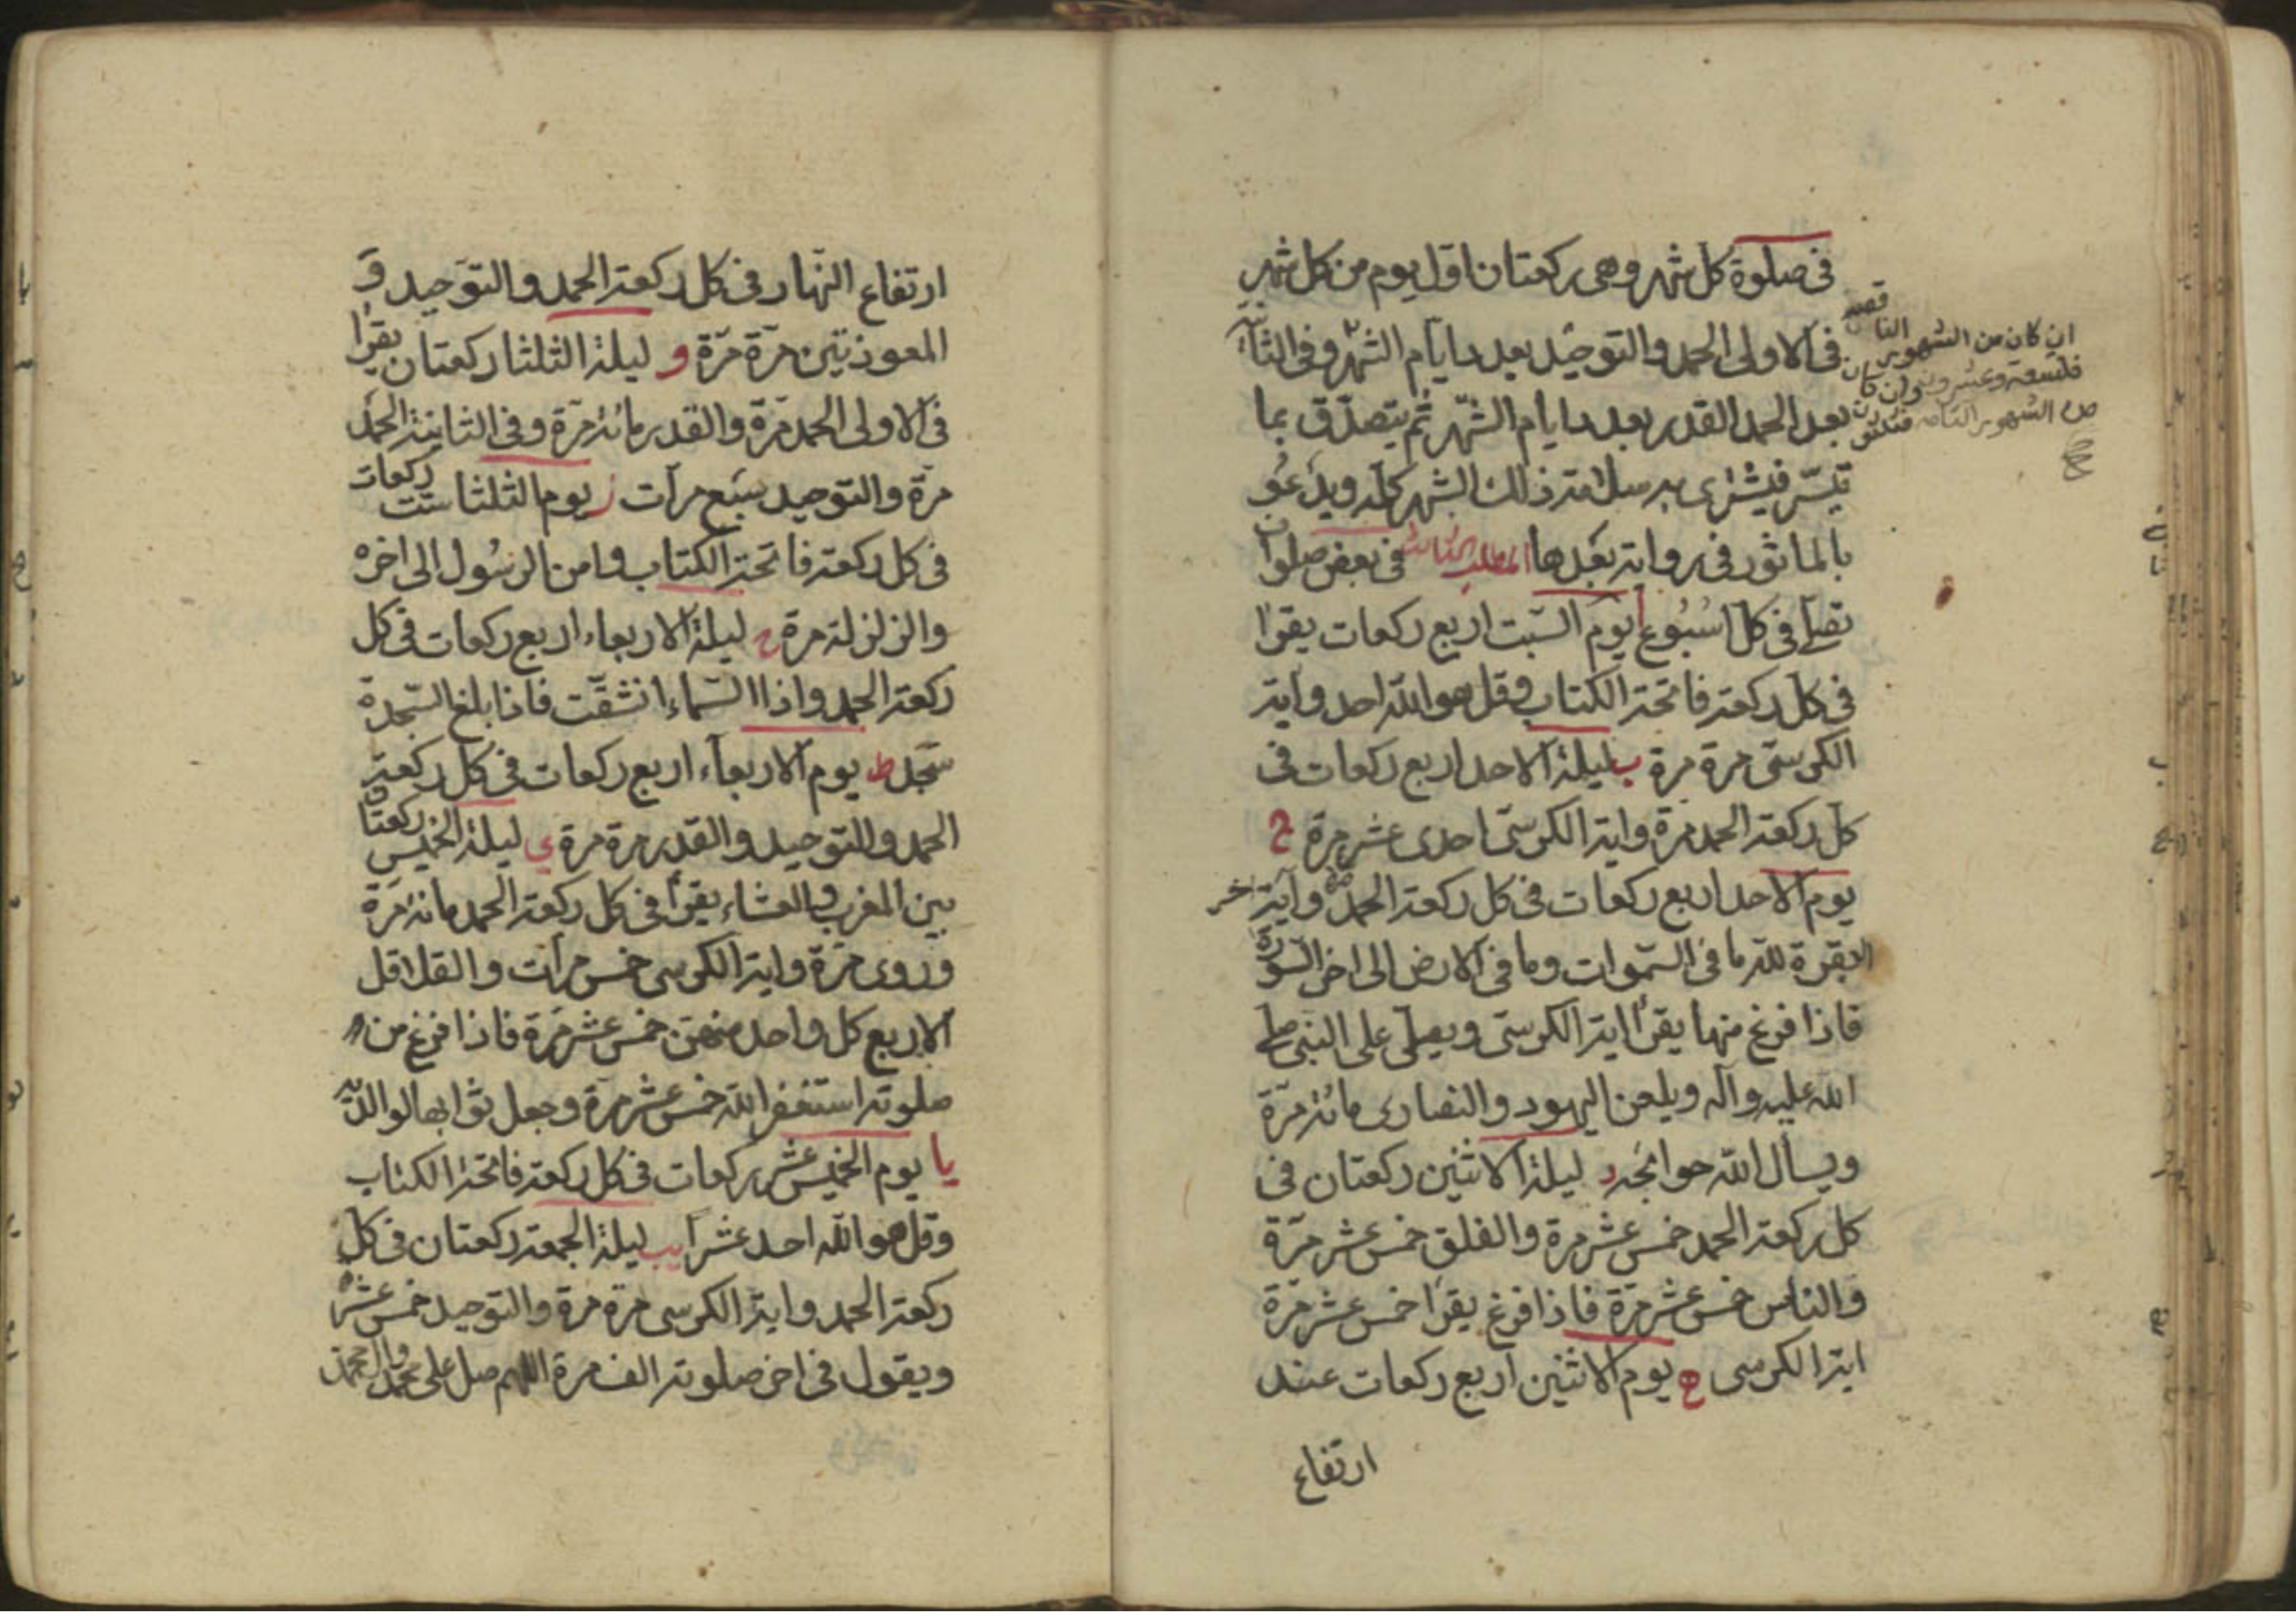 في صلوة كل شهر وهى ركعتان اول يوم من كل شهر
في الاولى الحمد والتوحيد بعدد ايام الشهر وفي الثانية
بعد الحمد القدر بعدد ايام الشهر ثم يتصدق بما
تيسر فيشترى به سلامة ذلك الشهر كله ويدعو
بالماثور في رواية بعدها المطلب الثالث في بعض صلوات
تصلى في كل اسبوع ا يوم السبت اربع ركعات يقرا
في كل ركعة فاتحة الكتاب وقل هو الله احد وآية
الكرسى مرة مرة ب ليلة الاحد اربع ركعات في
كل ركعة الحمد مرة واية الكرسى احدى عشر مرة ج
يوم الاحد اربع ركعات في كل ركعة الحمد مرة وآية اخر
البقرة لله ما في السموات وما في الارض الى اخر السورة
فاذا فرغ منها يقرا اية الكرسى ويصلى على النبى صلى
الله عليه وآله ويلعن اليهود والنصارى مائة مرة
ويسأل الله حوائجه د ليلة الاثنين ركعتان في
كل ركعة الحمد خمس عشر مرة والفلق خمس عشر مرة
والناس خمس عشر مرة فاذا فرغ يقرا خمس عشر مرة
اية الكرسى ه يوم الاثنين اربع ركعات عند
ارتفاع
ان كان من الشهور الناقصة
فلتسعة وعشرون وان كان
من الشهور التامة فثلثون
ارتفاع النهار في كل ركعة الحمد والتوحيد و
المعوذتين مرة مرة و ليلة الثلثا ركعتان يقرا
في الاولى الحمد مرة والقدر مائة مرة وفي الثانية الحمد
مرة والتوحيد سبع مرات ز يوم الثلثا ست ركعات
في كل ركعة فاتحة الكتاب وامن الرسول الى اخره
والزلزلة مرة ح ليلة الاربعاء اربع ركعات في كل
ركعة الحمد واذا السماء انشقت فاذا بلغ السجدة
سجد ط يوم الاربعاء اربع ركعات في كل ركعة
الحمد والتوحيد والقدر مرة مرة ي ليلة الخميس ركعتان
بين المغرب والعشاء يقرا في كل ركعة الحمد مائة مرة
وروى مرة واية الكرسى خمس مرات والقلاقل
الاربع كل واحد منهن خمس عشر مرة فاذا فرغ من
صلوته استغفر الله خمس عشر مرة وجعل ثوابها لوالديه
يا يوم الخميس عشر ركعات في كل ركعة فاتحة الكتاب
وقل هو الله احد عشرا يب ليلة الجمعة ركعتان في كل
ركعة الحمد واية الكرسى مرة مرة والتوحيد خمس عشرة
ويقول في اخر صلوته الف مرة اللهم صل على محمد وال محمد